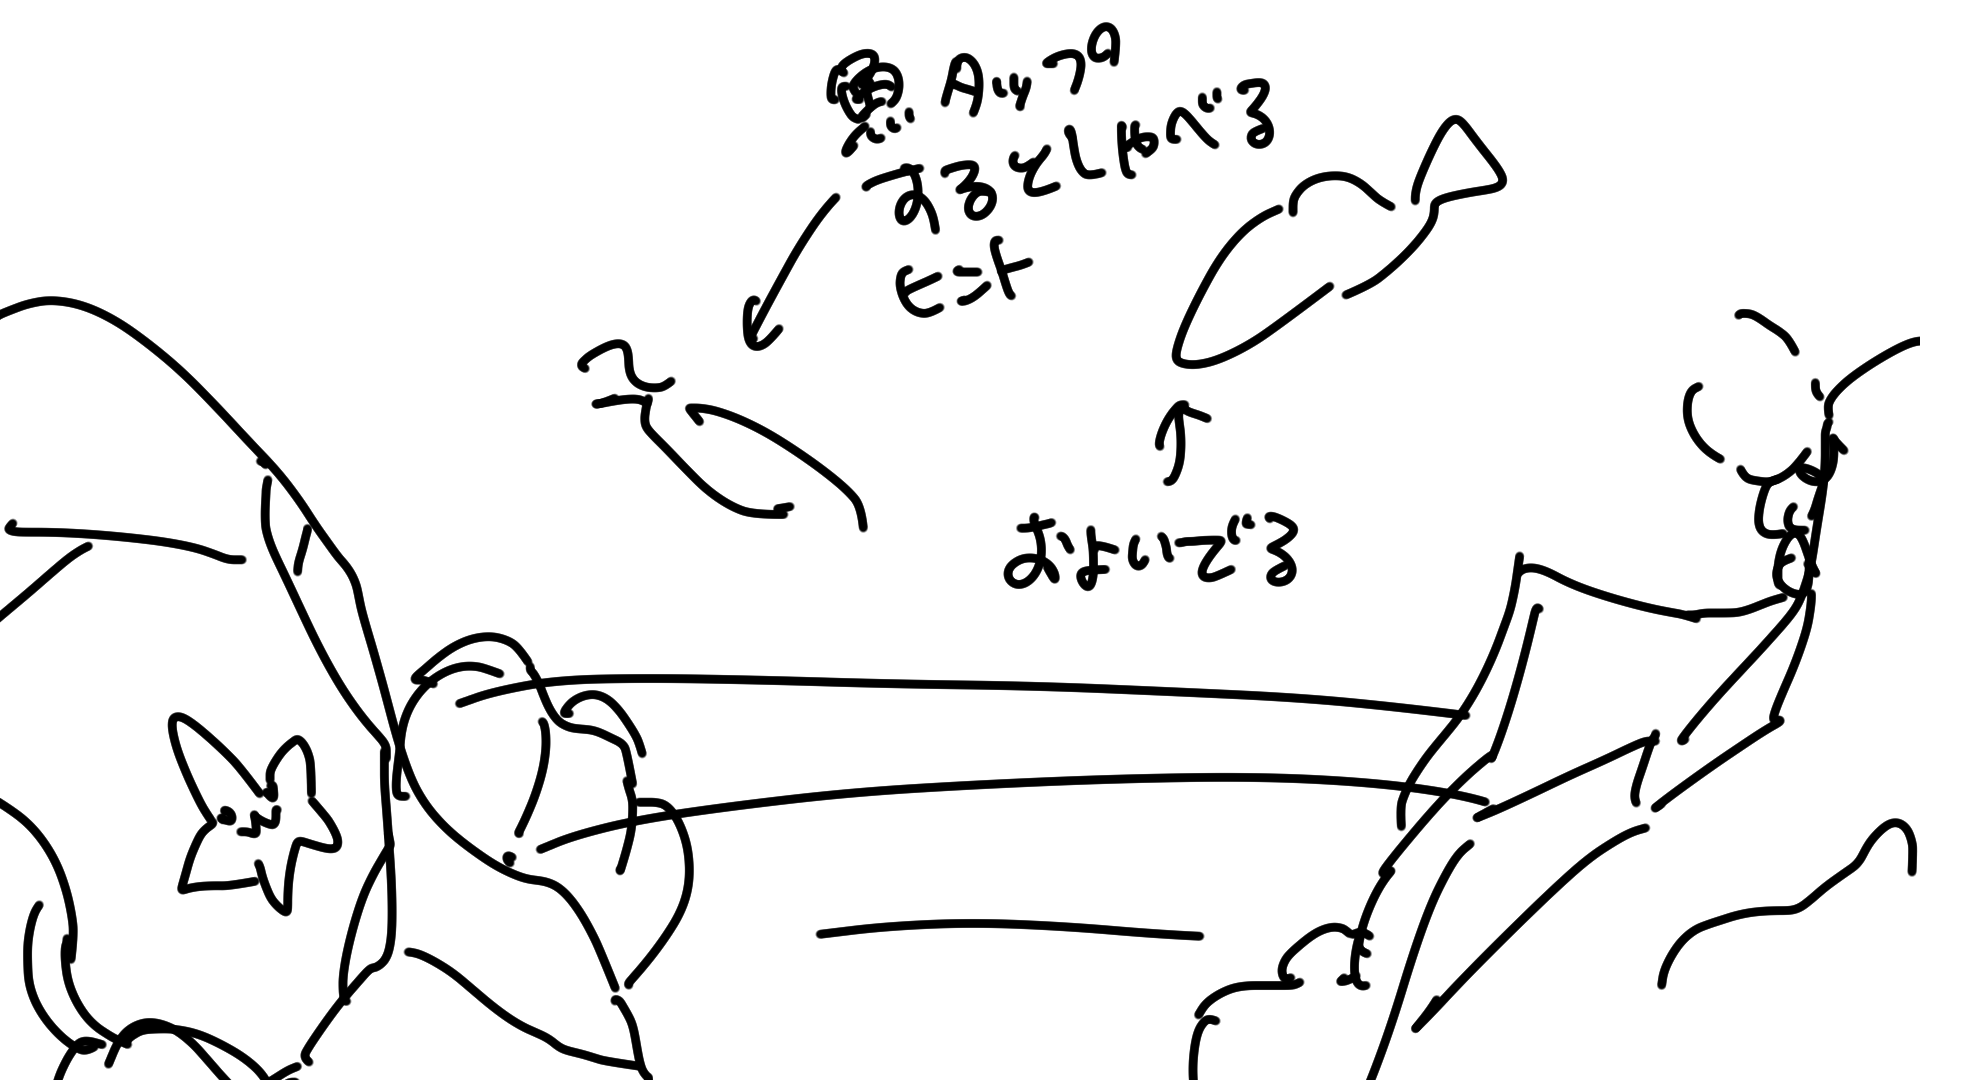 魚が Aップ
するとしゃべる
ヒント
およいでる